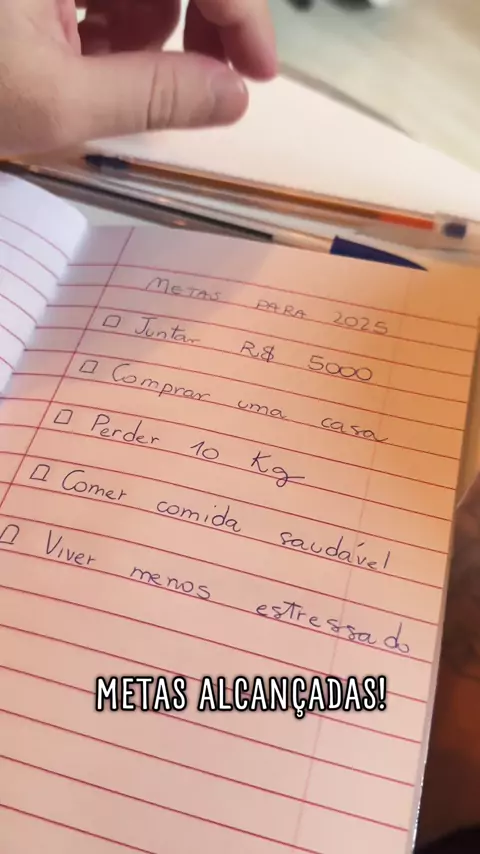 METAS PARA 2025
Juntar R$ 5000
Comprar uma casa
Perder 10 Kg
Comer comida saudável
Viver menos estressado
METAS ALCANÇADAS!